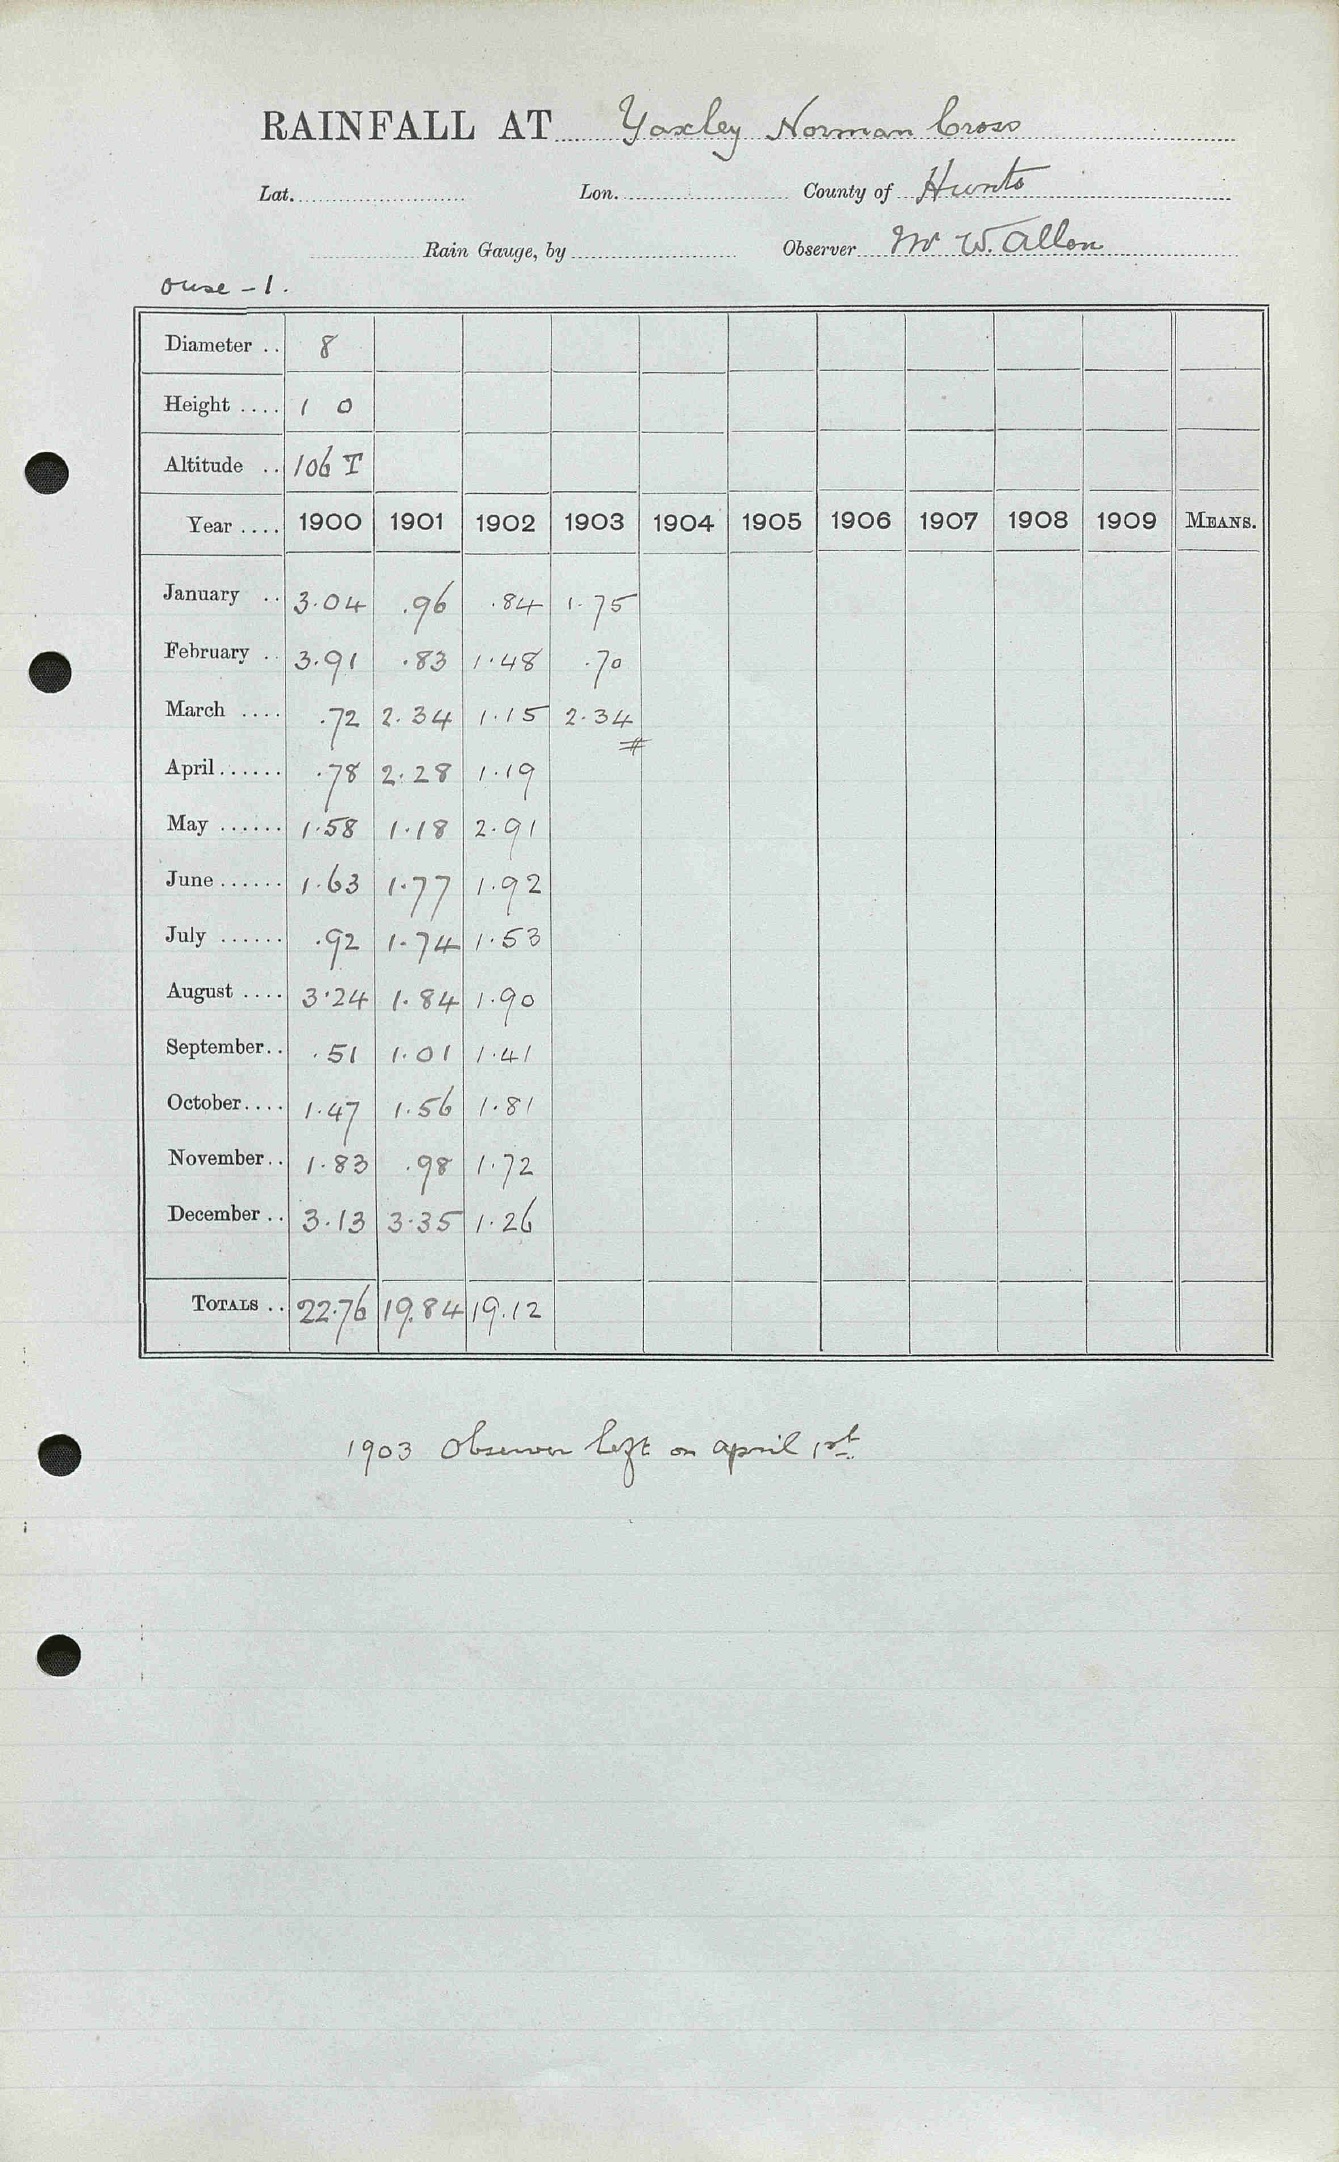 RAINFALL AT Yaxley Norman Cross
Lat. Lon. County of Hunts
Rain Gauge, by Observer Mr W. Allen
Ouse - 1.
Diameter .. 8
Height .... 1 0
Altitude .. 106 T
Year .... 1900 1901 1902 1903 1904 1905 1906 1907 1908 1909 MEANS.
January .. 3.04 .96 .84 1.75
February .. 3.91 .83 1.48 .70
March .... .72 2.34 1.15 2.34
#
April...... .78 2.28 1.19
May ...... 1.58 1.18 2.91
June...... 1.63 1.77 1.92
July ...... .92 1.74 1.53
August .... 3.24 1.84 1.90
September.. .51 1.01 1.41
October.... 1.47 1.56 1.81
November.. 1.83 .98 1.72
December .. 3.13 3.35 1.26
TOTALS .. 22.76 19.84 19.12
1903 Observer left on april 1st.